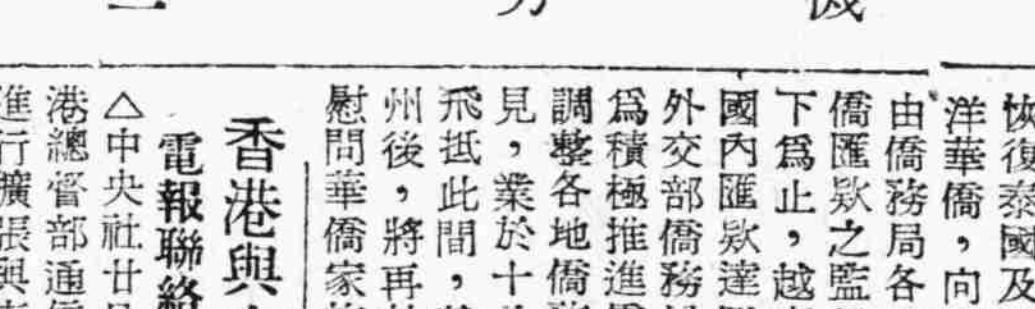 恢復泰國及
洋華僑，向
由僑務局各
僑匯款之監
下為止，越
國內匯欵達
外交部僑務
為積極推進
調整各地僑
見，業於十
飛抵此間，
州後，將再
慰問華僑家
香港與
電報聯絡
△中央社廿
港總督部通
進行擴張與